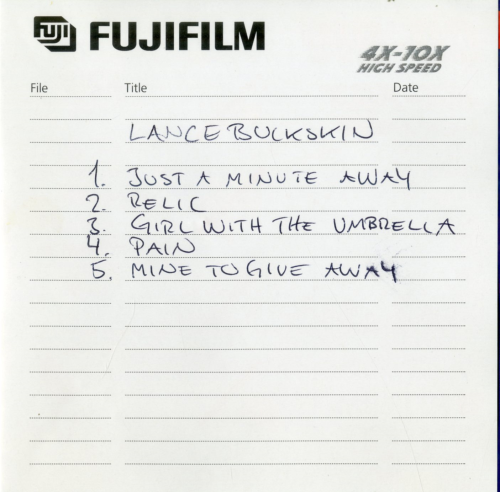 FUJI FUJIFILM
4X-10X
HIGH SPEED
File Title Date
LANCE BUCKSKIN
1. JUST A MINUTE AWAY
2. RELIC
3. GIRL WITH THE UMBRELLA
4. PAIN
5. MINE TO GIVE AWAY